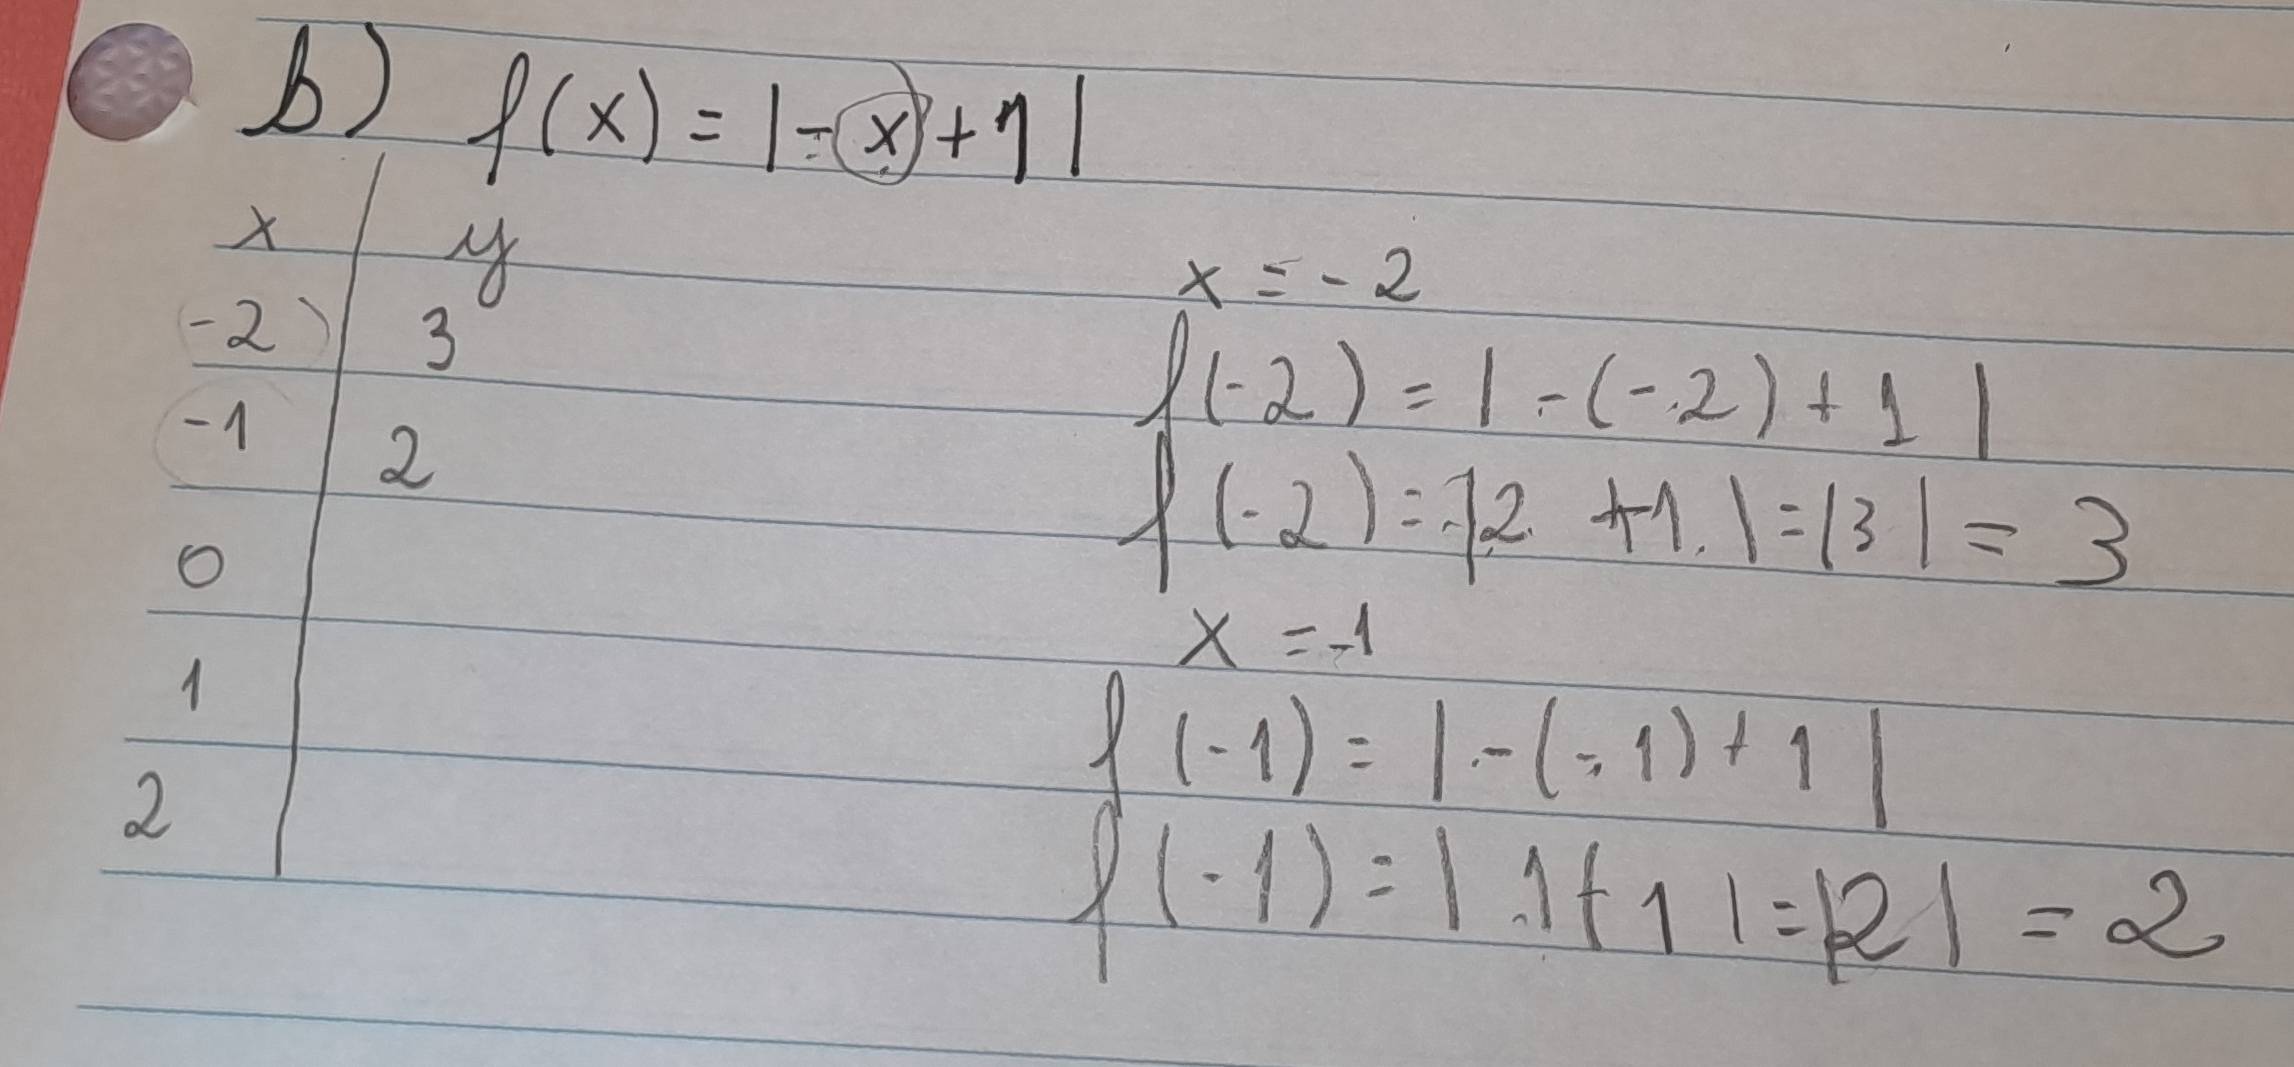 b) f(x) = |-x+1|
x y
-2 3
-1 2
0
1
2
x = -2
f(-2) = |-(-2)+1|
f(-2) = |2 +1| = |3| = 3
x = -1
f(-1) = |-(-1)+1|
f(-1) = |1+1| = |2| = 2